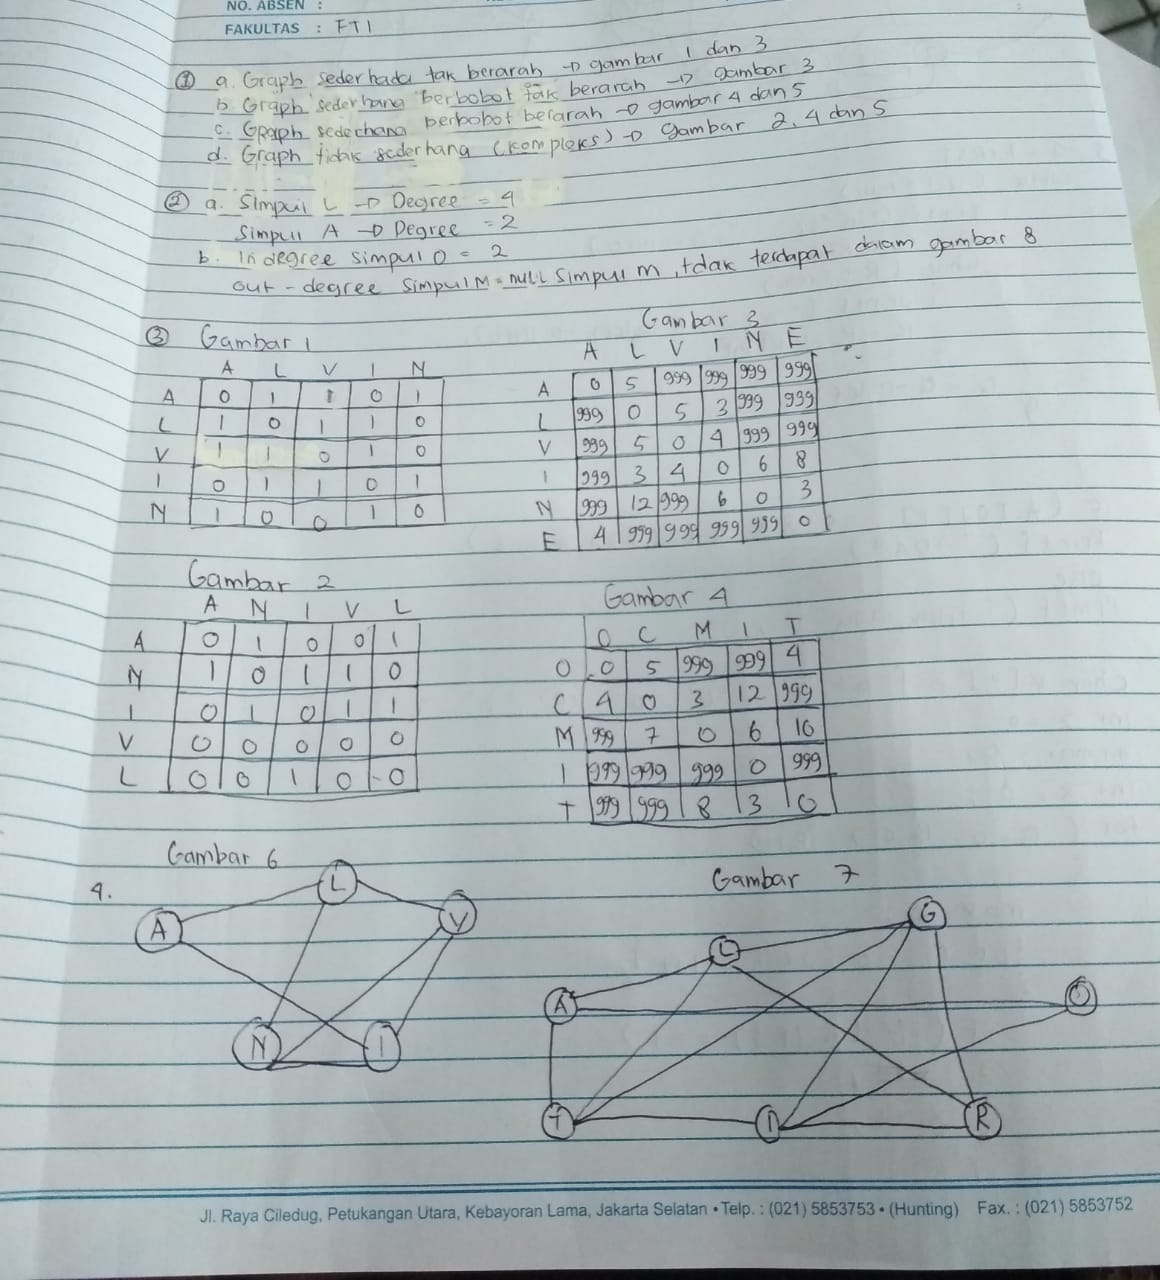 NO. ABSEN :
FAKULTAS : FTI
① a. Graph sederhada tak berarah → gambar 1 dan 3
b. Graph sederhana berbobot tak berarah → gambar 3
c. Graph sederhana berbobot berarah → gambar 4 dan 5
d. Graph tidak sederhana (kompleks) → gambar 2, 4 dan 5
② a. Simpul L → Degree = 4
Simpul A → Degree = 2
b. In degree simpul O = 2
out-degree simpul M = null simpul m, tdak terdapat dalam gambar 8
③ Gambar 1
A L V I N
A 0 1 1 0 1
L 1 0 1 1 0
V 1 1 0 1 0
I 0 1 1 0 1
N 1 0 0 1 0
Gambar 3
A L V I N E
A 0 5 999 999 999 999
L 999 0 5 3 999 999
V 999 5 0 4 999 999
I 999 3 4 0 6 8
N 999 12 999 6 0 3
E 4 999 999 999 999 0
Gambar 2
A N I V L
A 0 1 0 0 1
N 1 0 1 1 0
I 0 1 0 1 1
V 0 0 0 0 0
L 0 0 1 0 0
Gambar 4
O C M I T
O 0 5 999 999 4
C 4 0 3 12 999
M 999 7 0 6 16
I 999 999 999 0 999
T 999 999 8 13 0
4. Gambar 6
A L V N I
Gambar 7
A L G O T I R
Jl. Raya Ciledug, Petukangan Utara, Kebayoran Lama, Jakarta Selatan • Telp. : (021) 5853753 • (Hunting) Fax. : (021) 5853752